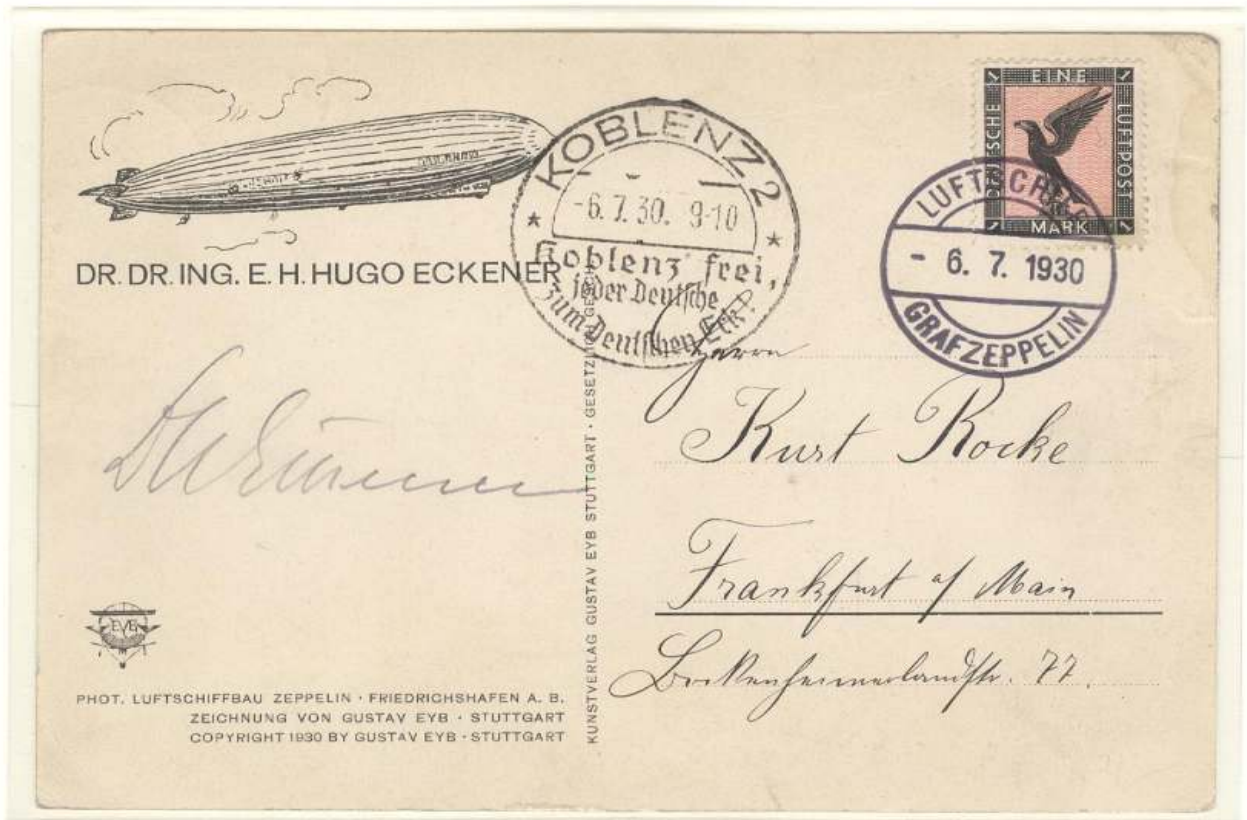 DR. DR. ING. E. H. HUGO ECKENER
EVB
PHOT. LUFTSCHIFFBAU ZEPPELIN · FRIEDRICHSHAFEN A. B.
ZEICHNUNG VON GUSTAV EYB · STUTTGART
COPYRIGHT 1930 BY GUSTAV EYB · STUTTGART
KUNSTVERLAG GUSTAV EYB STUTTGART · GESETZLICH GESCH.
KOBLENZ 2
-6.7.30. 9-10
Koblenz frei,
jeder Deutsche
zum Deutschen Eck!
1 EINE 1
DEUTSCHE
LUFTPOST
1 MARK 1
LUFTSCHIFF
- 6. 7. 1930
GRAF ZEPPELIN
Herrn
Kurt Rocke
Frankfurt a/ Main
Bockenheimerlandstr. 77.